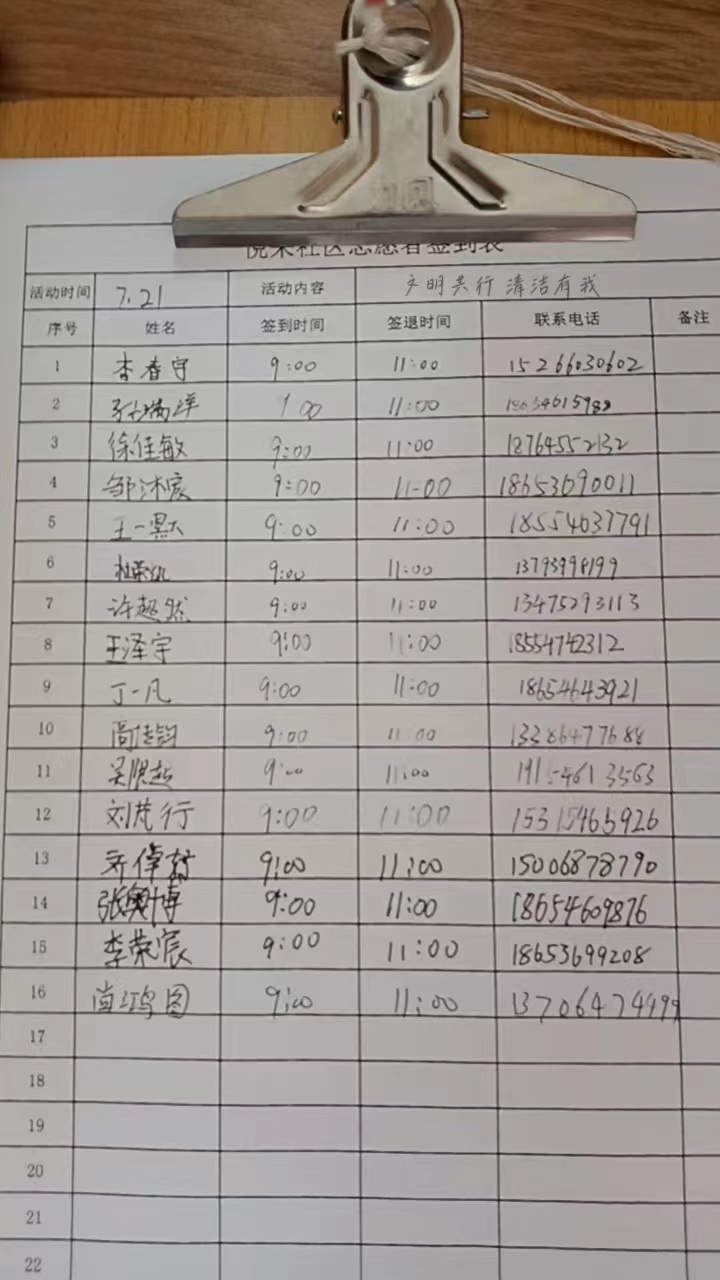 社区志愿者签到表
活动时间 7.21 活动内容 文明共行 清洁有我
序号 姓名 签到时间 签退时间 联系电话 备注
1 李春守 9:00 11:00 15266030602
2 11:00
3 徐佳敏 9:00 11:00 18764552132
4 邹沐宸 9:00 11-00 18653690011
5 王一默 9:00 11:00 18554037791
6 9:00 11:00 13793998199
7 许超然 9:00 11:00 13475293113
8 王泽宇 9:00 11:00 18554742312
9 丁一凡 9:00 11:00 18654643921
10 9:00 11:00 13386477688
11 11:00
12 刘芃行 9:00 11:00 15315465926
13 9:00 11:00 15006878790
14 张奥博 9:00 11:00 18654609876
15 李荣宸 9:00 11:00 18653699208
16 尚鸿图 9:00 11:00 13706474499
17
18
19
20
21
22